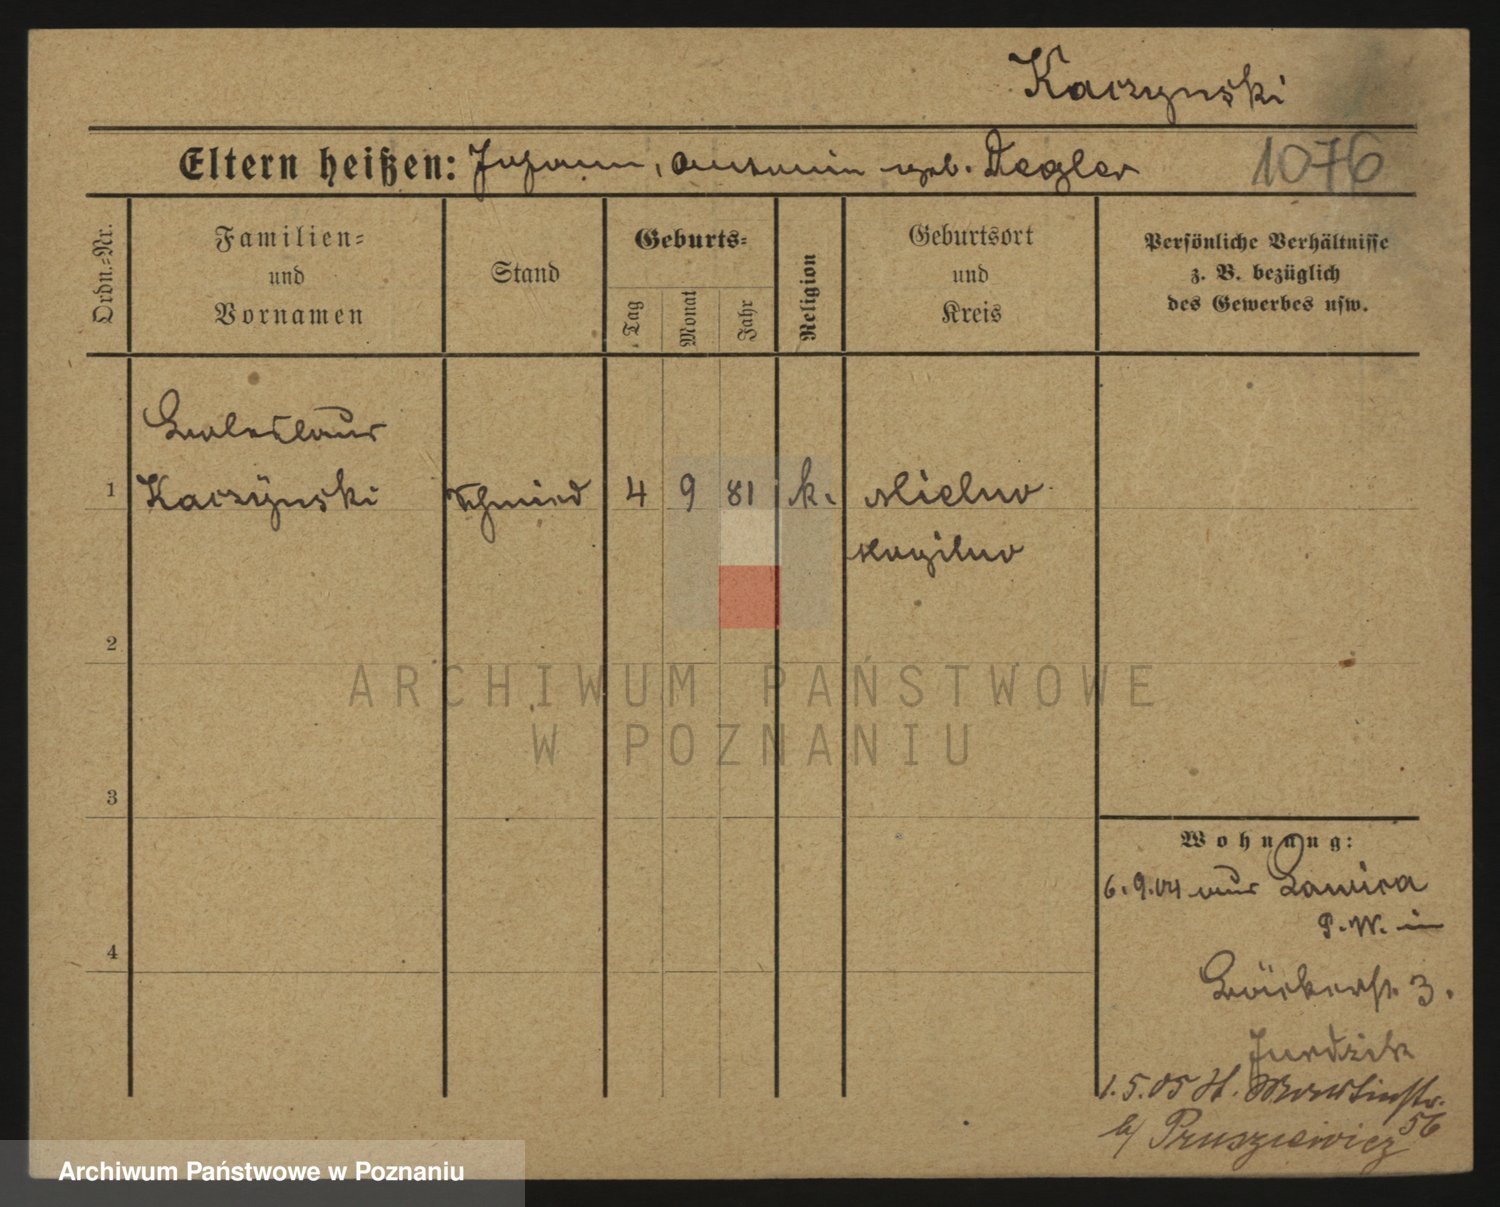 Kaczynski
Eltern heißen: Johann, Antonin geb. Degler
1076
Ordn.=Nr.
Familien=
und
Vornamen
Stand
Geburts=
Tag
Monat
Jahr
Religion
Geburtsort
und
Kreis
Persönliche Verhältnisse
z. B. bezüglich
des Gewerbes usw.
Boleslaus
1 Kaczÿnski Schmied 4 9 81 k. Mielno
Mogilno
2
ARCHIWUM PAŃSTWOWE
W POZNANIU
3
Wohnung:
6.9.04 aus Lawica
P.W. in
Bäckerstr. 3.
4
1.5.05 St. Martinstr.
56
b/ Prusziewicz
Archiwum Państwowe w Poznaniu